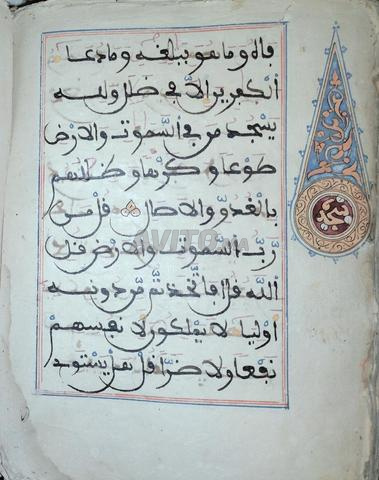 فاه وما هو ببلغه وما دعا
الكفرين الا في ضلل ولله
يسجد من في السموت والارض
طوعا وكرها وظللهم
بالغدو والاصال قل من
رب السموت والارض قل
الله قل افاتخذتم من دونه
اوليا لا يملكون لانفسهم
نفعا ولا ضرا قل هل يستوي
سجدة
AVITO.MA